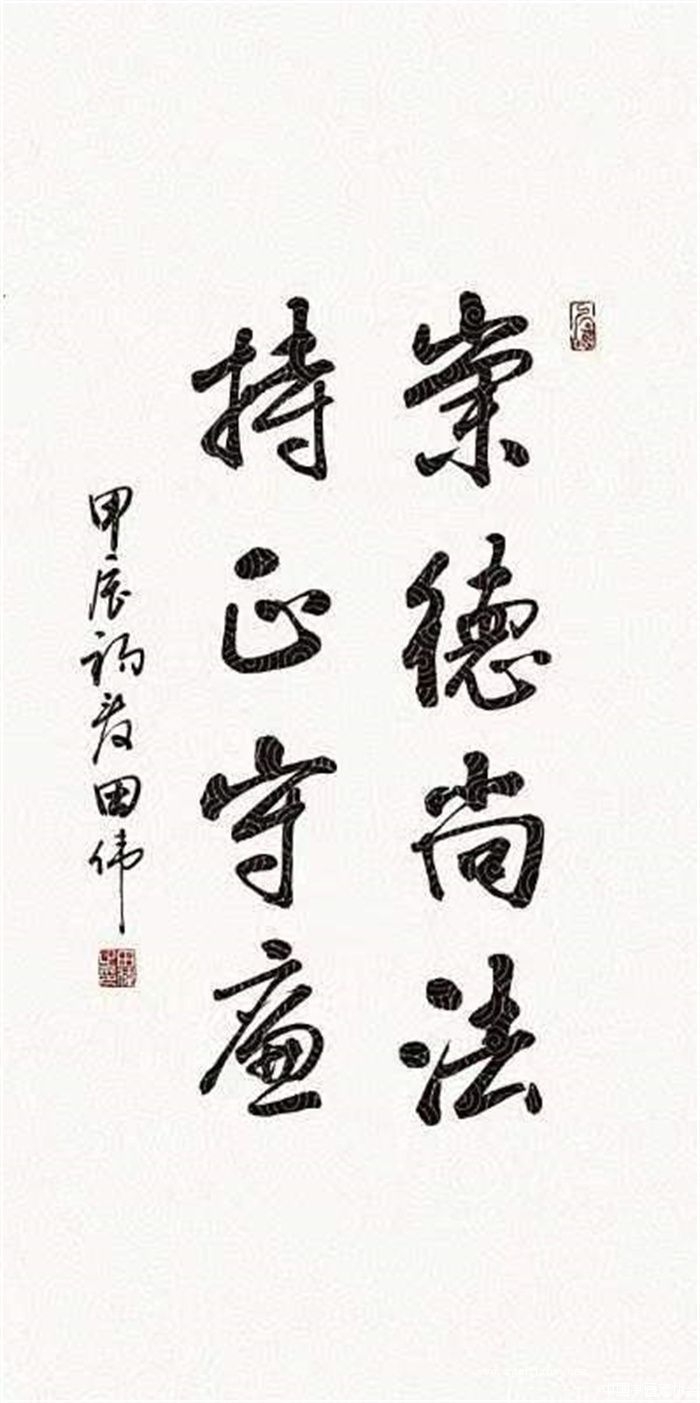 崇德尚法
持正守廉
甲辰初夏田伟